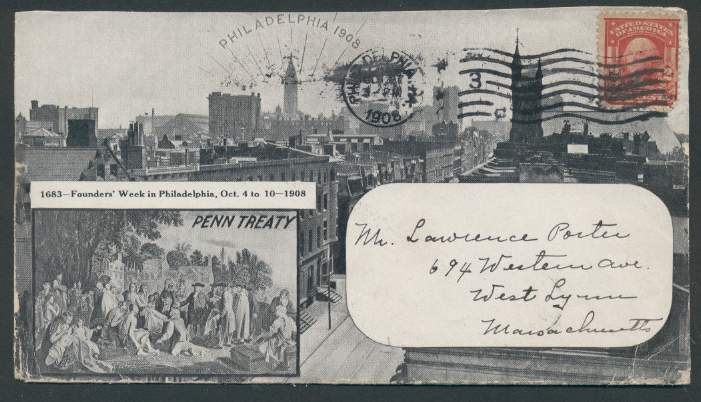 PHILADELPHIA 1908
PHILADELPHIA
1908
3
UNITED STATES
OF AMERICA
1683—Founders' Week in Philadelphia, Oct. 4 to 10—1908
PENN TREATY
Mr. Lawrence Porter
694 Western Ave.
West Lynn
Massachusetts